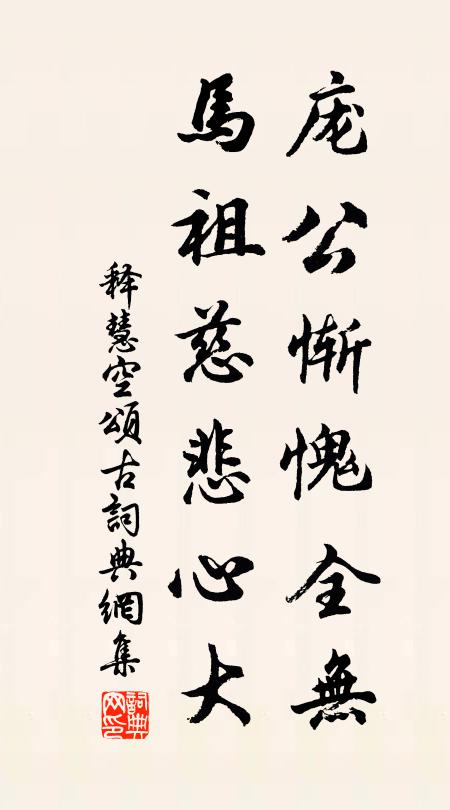 庞公惭愧全無
馬祖慈悲心大
释慧空頌古詞典網集
詞典网印